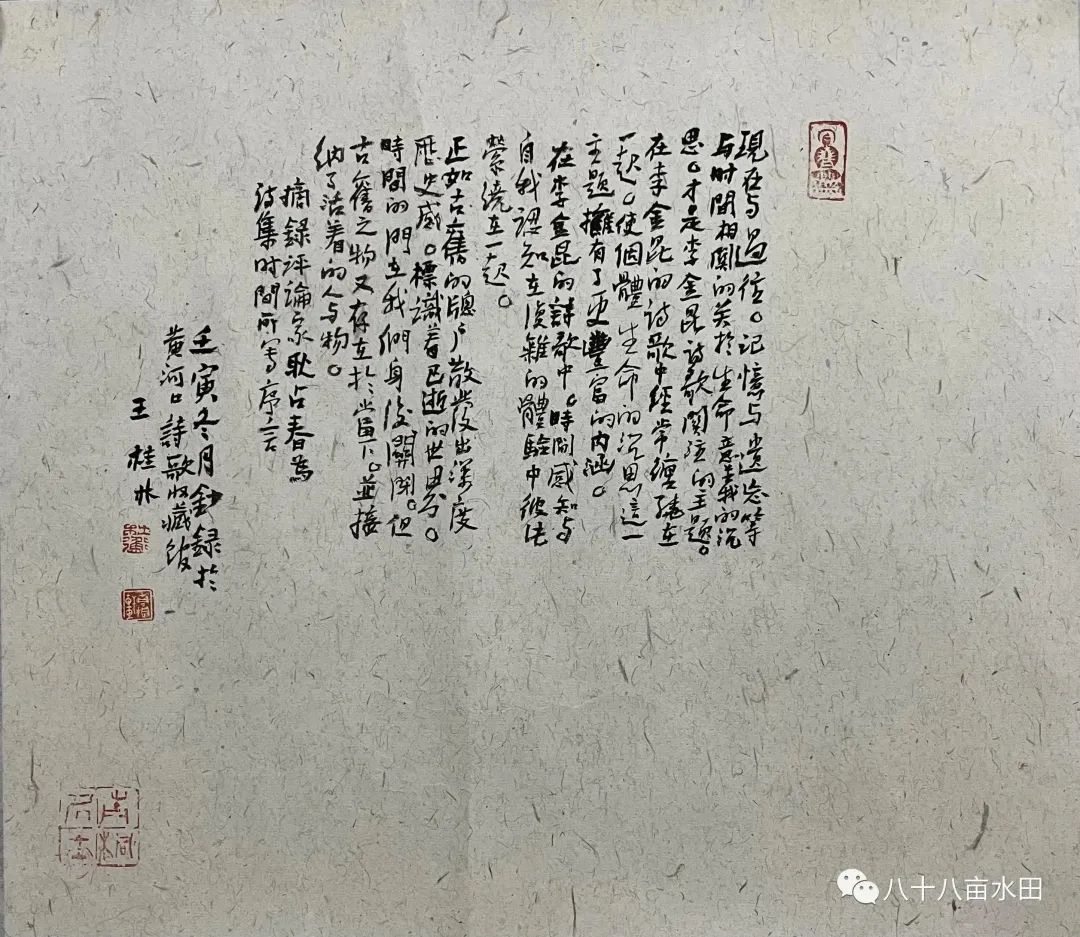 現在与過往。记憶与遗忘等
与时間相関的关於生命意義的沉
思。才是李金昆诗歌関注的主题。
在李金昆的诗歌中经常缠繞在
一起。使個體生命的沉思這一
主题擁有了更豐富的内涵。
在李金昆的詩歌中。時间感知与
自我認知在復雜的體驗中彼此
縈繞在一起。
正如古舊的牕户散發出深度
歷史感。標識着已逝的世界。
時間的門在我們身後關闭。但
古舊之物又存在於當下。並接
纳了活着的人与物。
摘錄評論家耿占春為
诗集时間所写序言
壬寅冬月鈔録於
黄河口詩歌收藏馆
王桂林
八十八亩水田